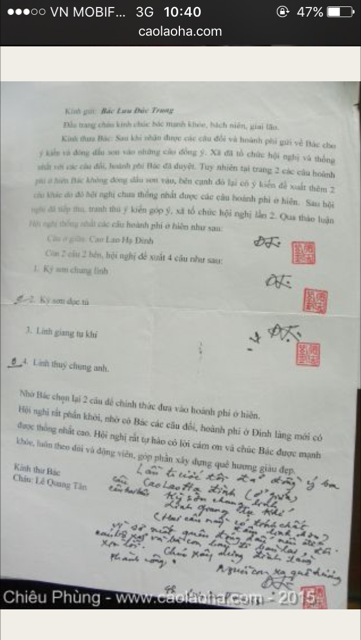 VN MOBIF... 3G 10:40 47%
caolaoha.com
Kính gửi: Bác Lưu Đức Trung
Đầu trang cháu kính chúc bác mạnh khoẻ, bách niên, giai lão.
Kính thưa Bác: Sau khi nhận được các câu đối và hoành phi gửi về Bác cho
ý kiến và đóng dấu son vào những câu đồng ý. Xã đã tổ chức hội nghị và thống
nhất với các câu đối, hoành phi Bác đã duyệt. Tuy nhiên tại trang 2 các câu hoành
phi ở hiên Bác không đóng dấu son vào, bên cạnh đó lại có ý kiến đề xuất thêm 2
câu khác do đó hội nghị chưa thống nhất được các câu hoành phi ở hiên. Sau hội
nghị đã tiếp thu, tranh thủ ý kiến góp ý, xã tổ chức hội nghị lần 2. Qua thảo luận
Hội nghị thống nhất các câu hoành phi ở hiên như sau:
Câu ở giữa: Cao Lao Hạ Đình
Còn 2 câu 2 bên, hội nghị đề xuất 4 câu như sau:
1. Kỳ sơn chung linh
2. Kỳ sơn dục tú
3. Linh giang tụ khí
4. Linh thuỷ chung anh.
Nhờ Bác chọn lại 2 câu để chính thức đưa vào hoành phi ở hiên.
Hội nghị rất phấn khởi, nhờ có Bác các câu đối, hoành phi ở Đình làng mới có
được thống nhất cao. Hội nghị rất tự hào có lời cảm ơn và chúc Bác được mạnh
khỏe, luôn theo dõi và động viên, góp phần xây dựng quê hương giàu đẹp.
Kính thư Bác
Cháu: Lê Quang Tân
Lần trước tôi đã đồng ý ba
câu Cao Lao Hạ Đình (ở giữa)
Kỳ sơn chung linh
Linh giang tụ khí
(Hai câu này
Chúc xây dựng đình làng
thành công.
Người con xa quê hương
Chiêu Phùng - www.caolaoha.com - 2015